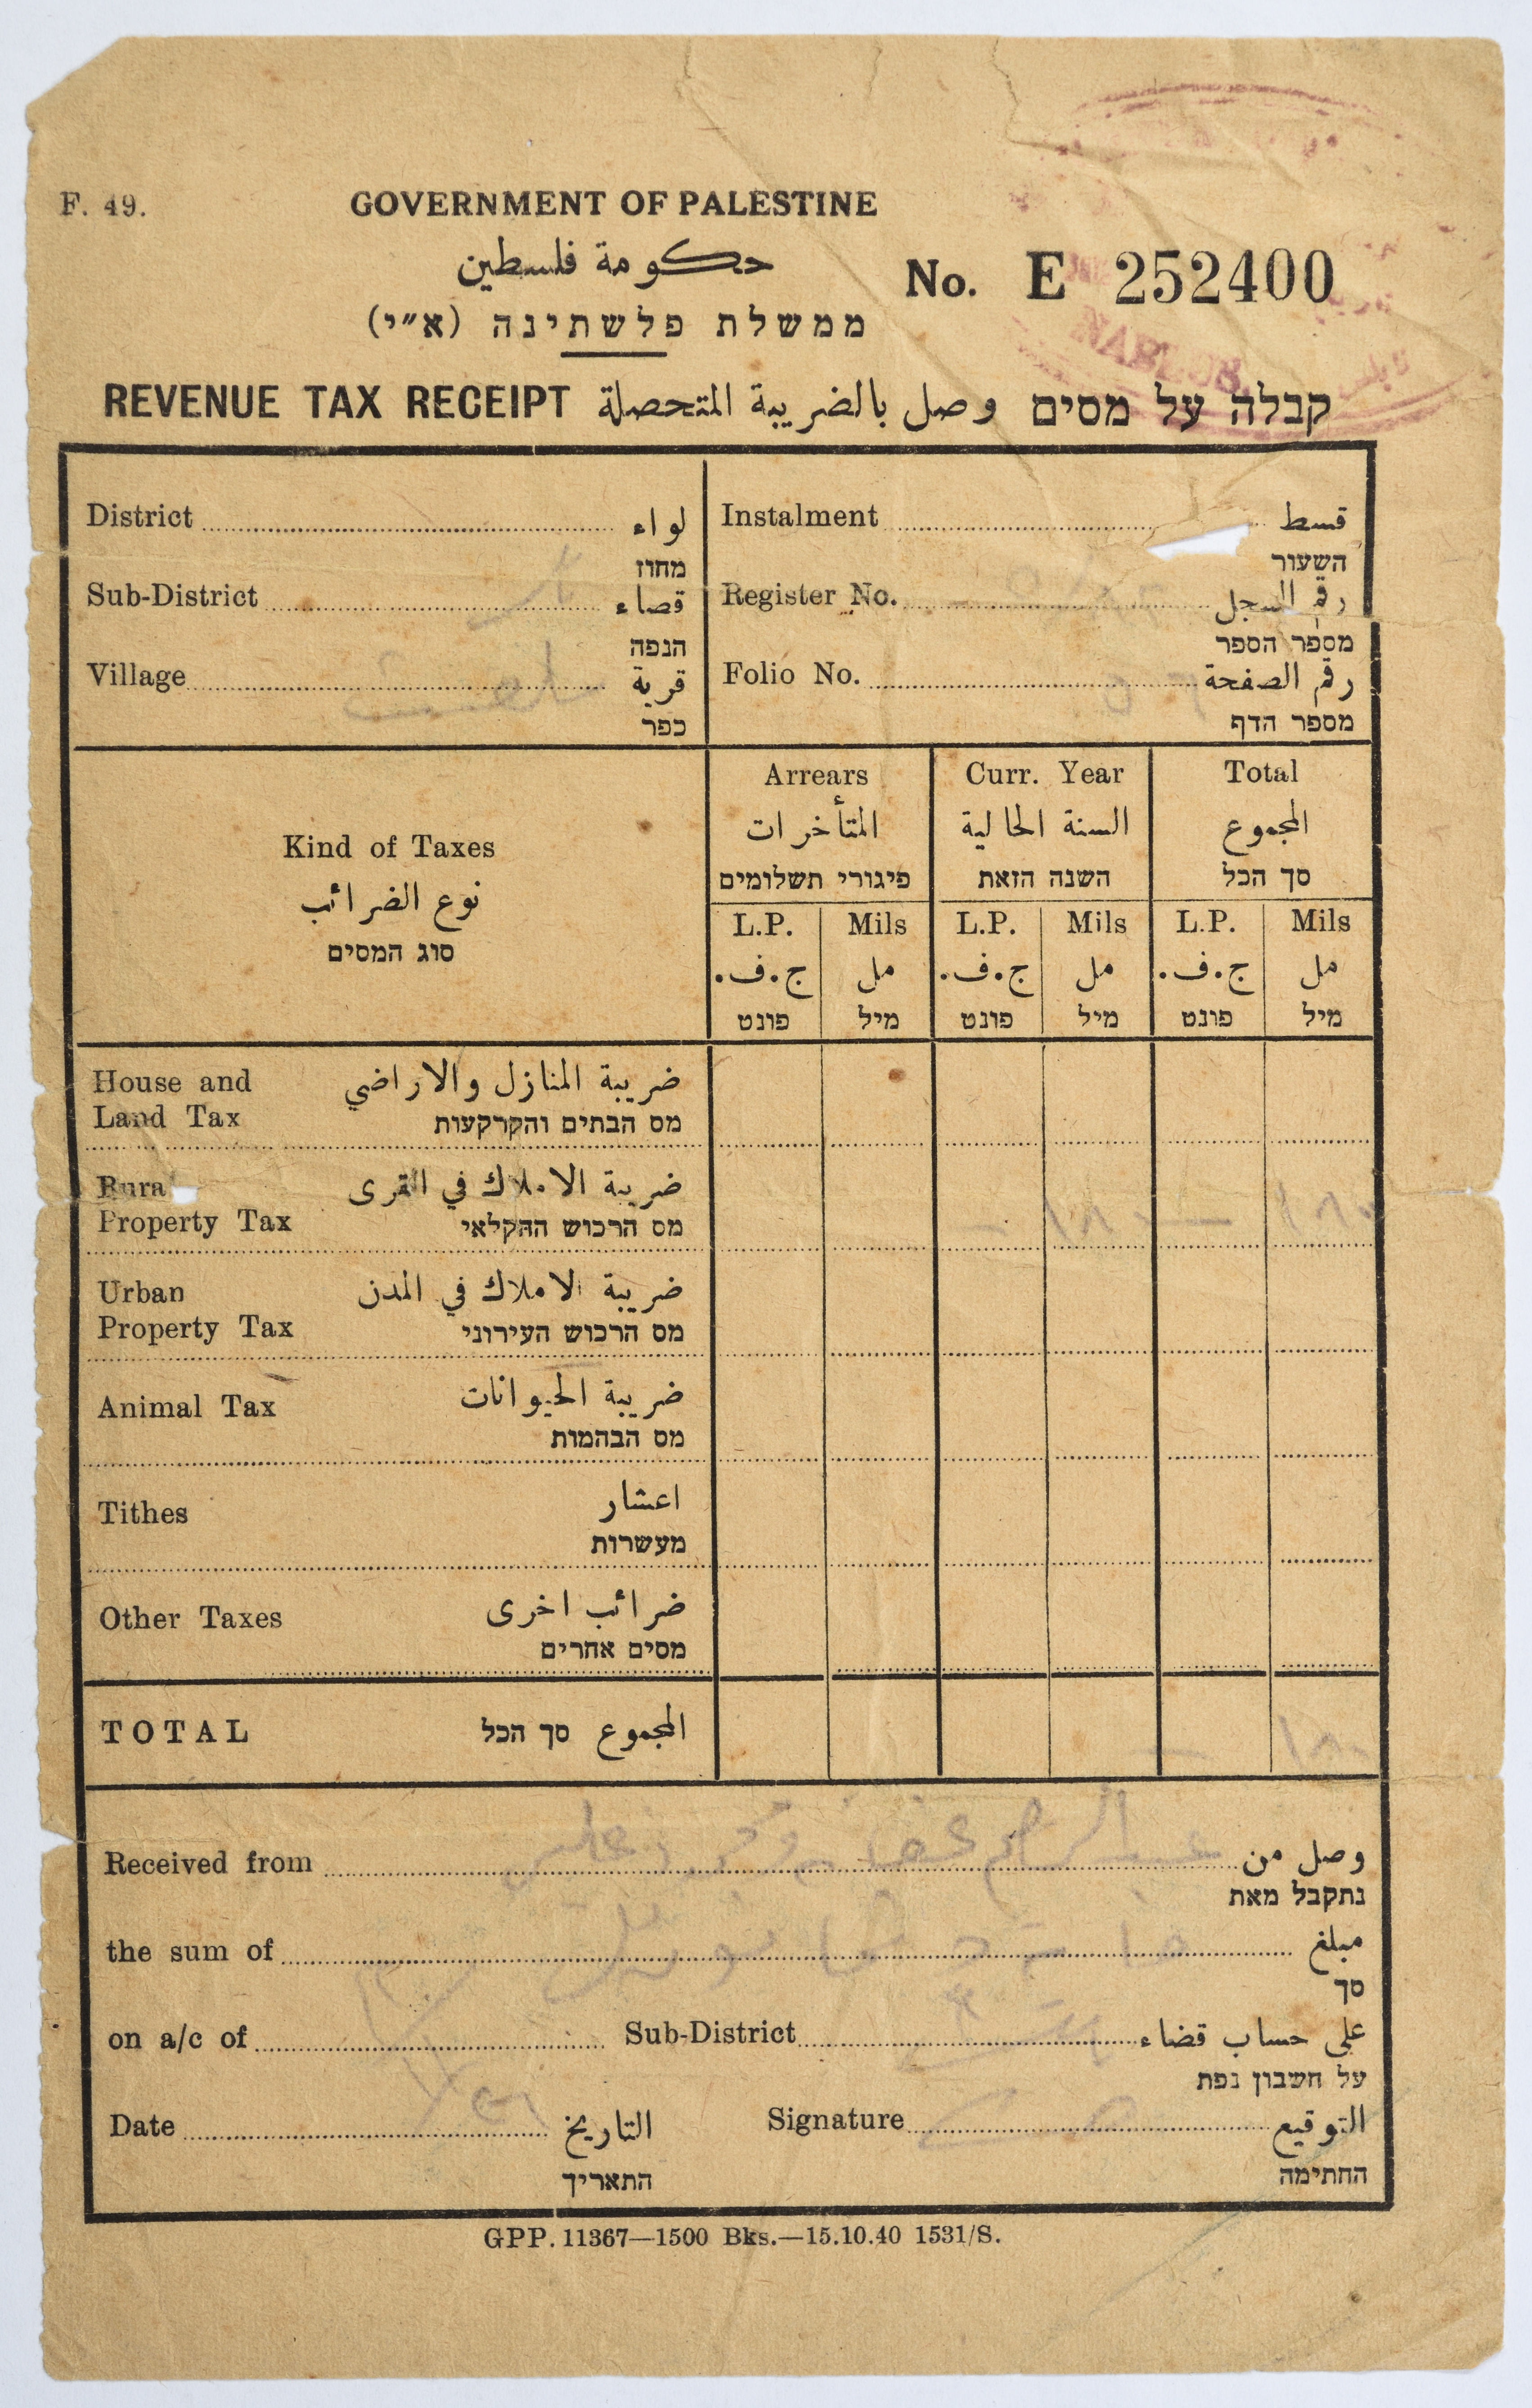 F. 49.
GOVERNMENT OF PALESTINE
حكومة فلسطين
No. E 252400
ממשלת פלשתינה (א״י)
REVENUE TAX RECEIPT وصل بالضريبة المتحصلة קבלה על מסים
District لواء
מחוז
Instalment قسط
השעור
Sub-District قضاء
הנפה
Register No. رقم السجل
מספר הספר
Village قرية
כפר
Folio No. رقم الصفحة
מספר הדף
Kind of Taxes
نوع الضرائب
סוג המסים
Arrears
المتأخرات
פיגורי תשלומים
Curr. Year
السنة الحالية
השנה הזאת
Total
المجموع
סך הכל
L.P. Mils L.P. Mils L.P. Mils
ج.ف. مل ج.ف. مل ج.ف. مل
פונט מיל פונט מיל פונט מיל
House and ضريبة المنازل والاراضي
Land Tax מס הבתים והקרקעות
Rura ضريبة الاملاك في القرى
Property Tax מס הרכוש החקלאי
Urban ضريبة الاملاك في المدن
Property Tax מס הרכוש העירוני
Animal Tax ضريبة الحيوانات
מס הבהמות
Tithes اعشار
מעשרות
Other Taxes ضرائب اخرى
מסים אחרים
TOTAL المجموع סך הכל
Received from وصل من
נתקבל מאת
the sum of مبلغ
סך
on a/c of Sub-District على حساب قضاء
על חשבון נפת
Date التاريخ Signature التوقيع
התאריך החתימה
GPP. 11367—1500 Bks.—15.10.40 1531/S.